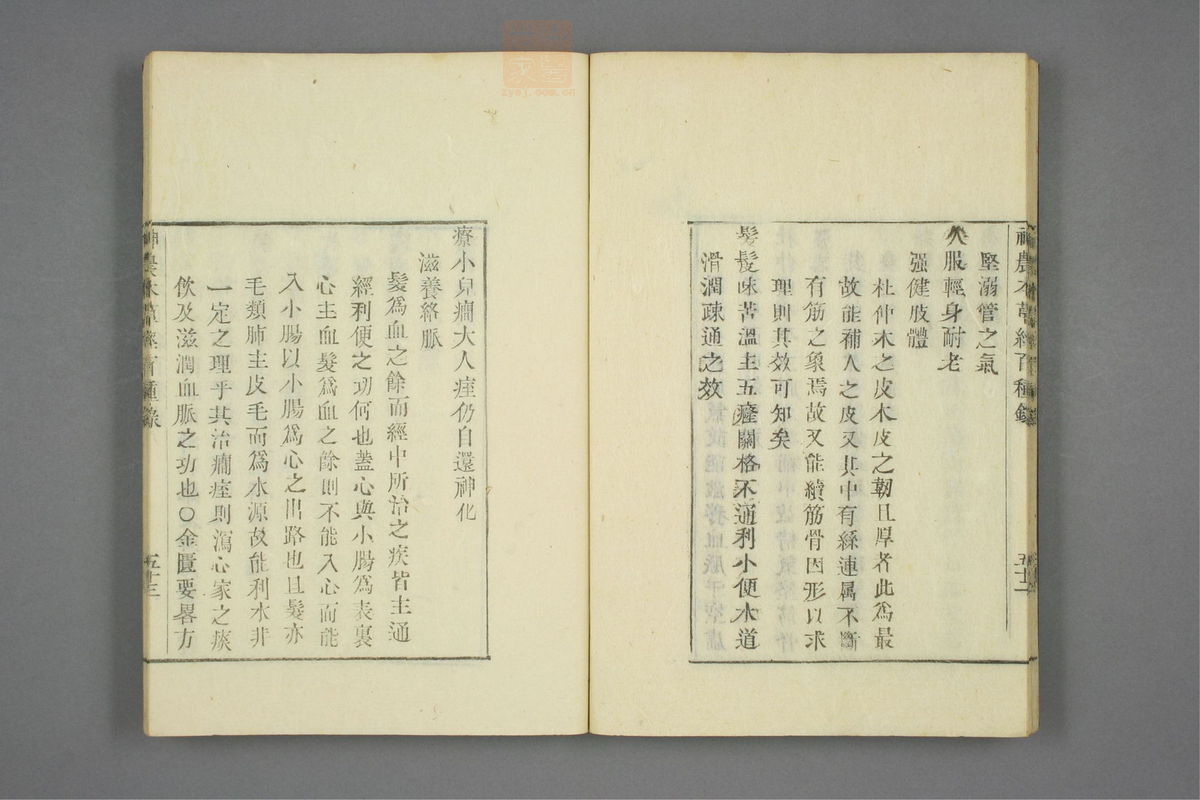 神農本草經百種錄
五十二
堅溺管之氣
久服輕身耐老
强健肢體
杜仲木之皮木皮之韌且厚者此爲最
故能補人之皮又其中有絲連属不斷
有筋之象焉故又能續筋骨因形以求
理則其效可知矣
髮髲味苦溫主五癃關格不通利小便水道
滑潤疎通之效
療小兒癇大人痓仍自還神化
滋養絡脈
髮爲血之餘而經中所治之疾皆主通
經利便之功何也蓋心與小腸爲表裏
心主血髮爲血之餘則不能入心而能
入小腸以小腸爲心之出路也且髮亦
毛類肺主皮毛而爲水源故能利水非
一定之理乎其治癇痓則瀉心家之痰
飲及滋潤血脈之功也○金匱要畧方
神農本草經百種錄
五十三
zysj.com.cn